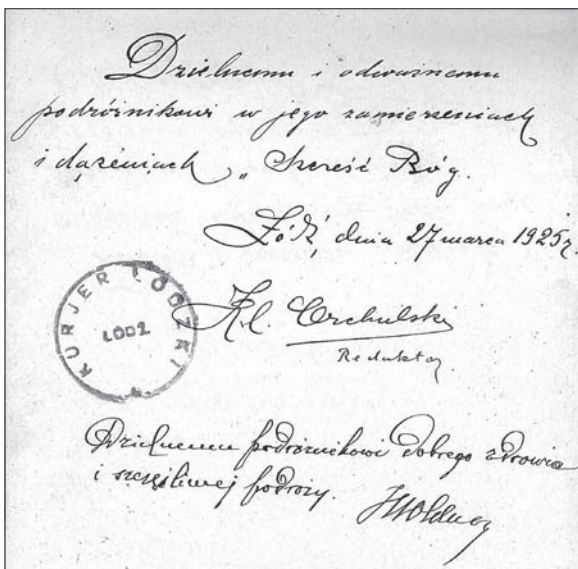 Dzielnemu i odważnemu
podróżnikowi w jego zamierzeniach
i dążeniach „Szczęść Bóg.
Łódź, dnia 27 marca 1925 r.
KURJER ŁÓDZKI
ŁÓDŹ
Redaktor
Dzielnemu podróżnikowi dobrego zdrowia
i szczęśliwej podróży.